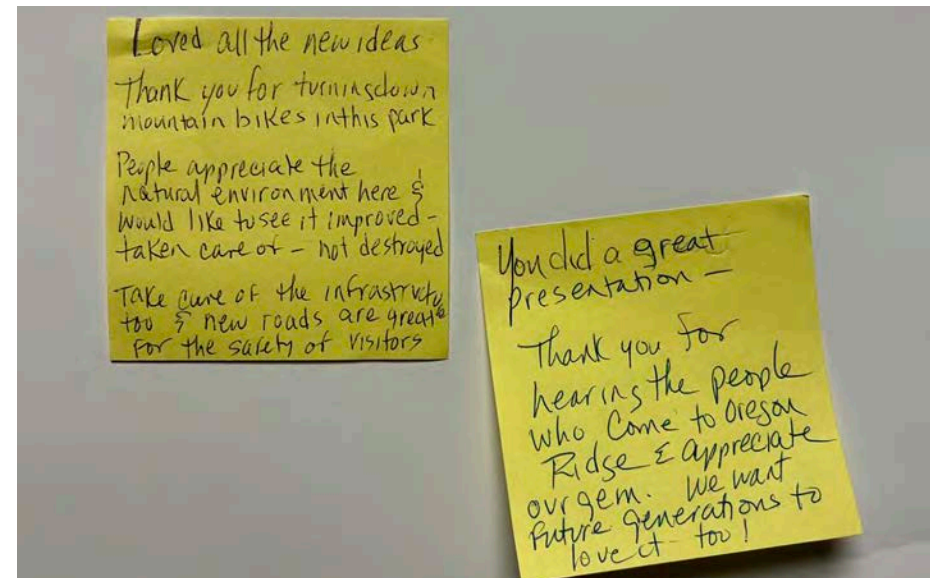 Loved all the new ideas
Thank you for turning down
mountain bikes in this park
People appreciate the
natural environment here &
would like to see it improved -
taken care of - not destroyed
Take care of the infrastructu
too & new roads are great
for the safety of visitors
You did a great
presentation -
Thank you for
hearing the people
who come to Oregon
Ridge & appreciate
our gem. We want
future generations to
love it too!